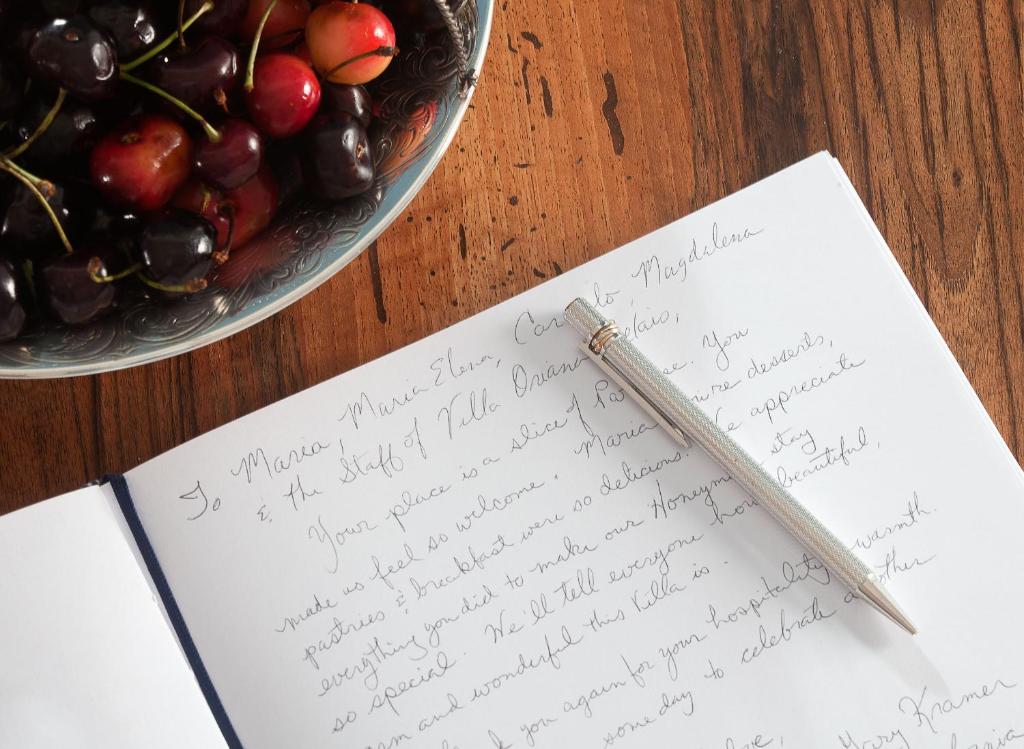 To Maria, Maria Elena, Magdalena
& the Staff of Villa
Your place is a slice of You
made us feel so welcome. Maria desserts,
pastries & breakfast were so delicious. appreciate
everything you did to make our Honeymoon stay
so special. We'll tell everyone how beautiful,
and wonderful this Villa is.
you again for your hospitality warmth.
some day to celebrate another
Kramer